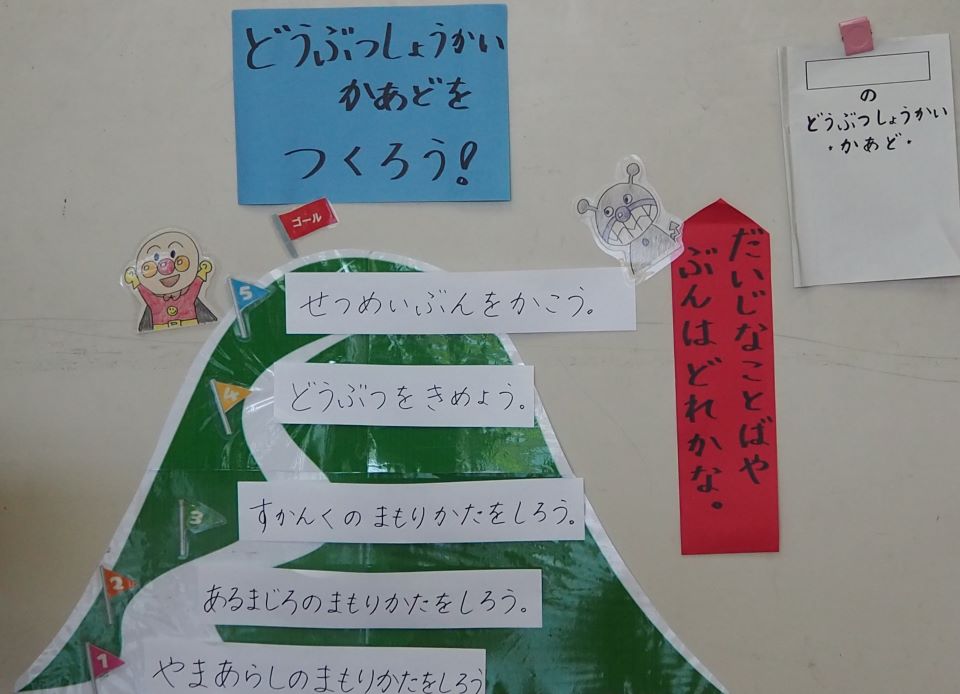 どうぶつしょうかい
かあどを
つくろう!
の
どうぶつしょうかい
・かあど・
ゴール
だいじなことばや
ぶんはどれかな。
5
せつめいぶんをかこう。
4
どうぶつをきめよう。
3
すかんくのまもりかたをしろう。
2
あるまじろのまもりかたをしろう。
1
やまあらしのまもりかたをしろう